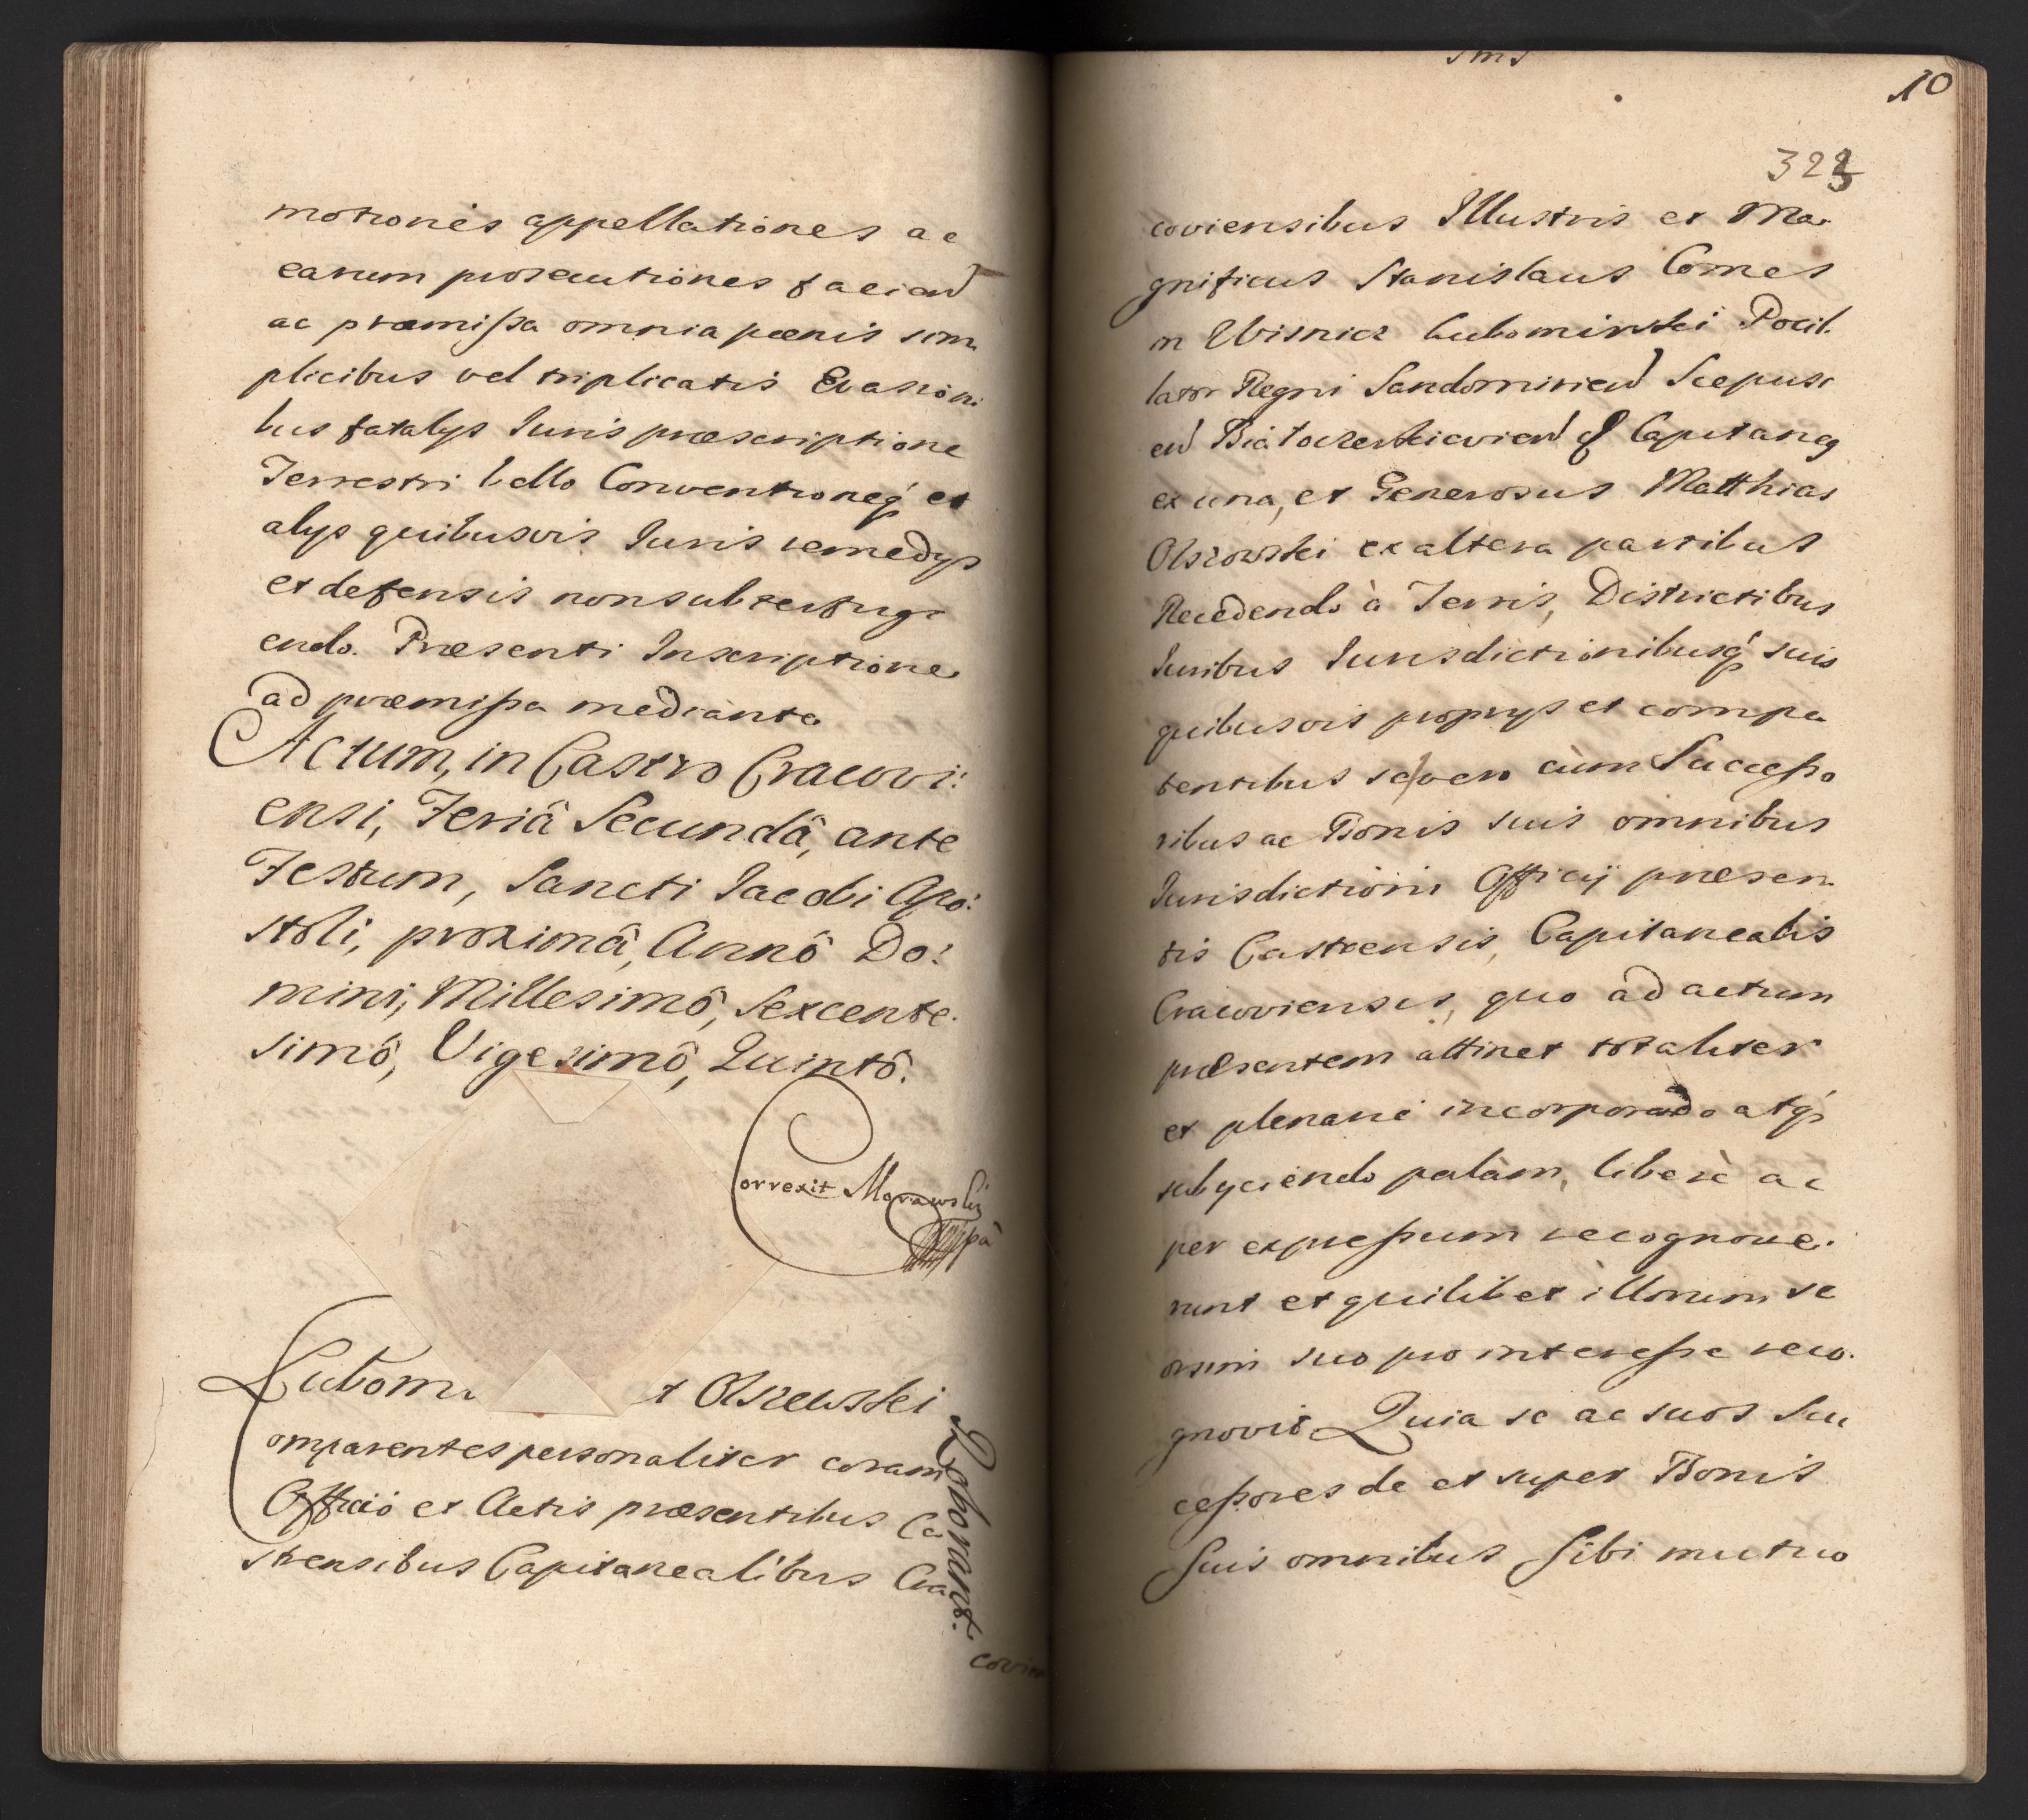 motiones appellationes ac
earum prosecutiones faciend
ac præmissa omnia pænis sim
plicibus vel triplicatis Evasioni
bus fatalys Iuris præscriptione
Terrestri bello Conventioneq et
alys quibusvis Iuris remedys
et defensis non subterfugi
endo. Præsenti Inscriptione
ad præmissa mediante
Actum, in Castro Cracovi:
ensi, Feriâ Secundâ, ante
Festum, Sancti Iacobi Apo:
stoli, proximâ, Annô Do:
mini, Millesimô, Sexcente.
simô, Vigesimô, Quintô.
Correxit Morawski
mpã
Lubomi t Olszewski
Comparentes personaliter coram
Officio et Actis præsentibus Ca
strensibus Capitanealibus Cra
Roborant.
covien
10
323
coviensibus Illustris et Ma
gnificus Stanislaus Comes
in Wisnicz Lubomirski Pocil
lator Regni Sandomirien Scepusi
en Białocerkievien & Capitaneq
ex una, et Generosus Matthias
Olszowski ex altera partibus
Recedendo à Terris, Districtibus
Iuribus Iurisdictionibusq suis
quibusvis proprys et compe
tentibus se vero cum Successo
ribus ac Bonis suis omnibus
Iurisdictioni Officij præsen
tis Castrensis, Capitanealis
Cracoviensis, quo ad actum
præsentem attinet totaliter
et plenarie incorporando atq
subyciendo palàm, liberè ac
per expressum recognove.
runt et quilibet illorum se
orsim suo pro interesse reco.
gnovit Quia se ac suos Suc
cessores de et super Bonis
Suis omnibus Sibi mutuo